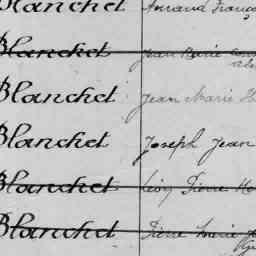 Blanchet Armand François
Blanchet Jean Marie
Blanchet Jean Marie
Blanchet Joseph Jean
Blanchet Léon Pierre
Blanchet Pierre Marie